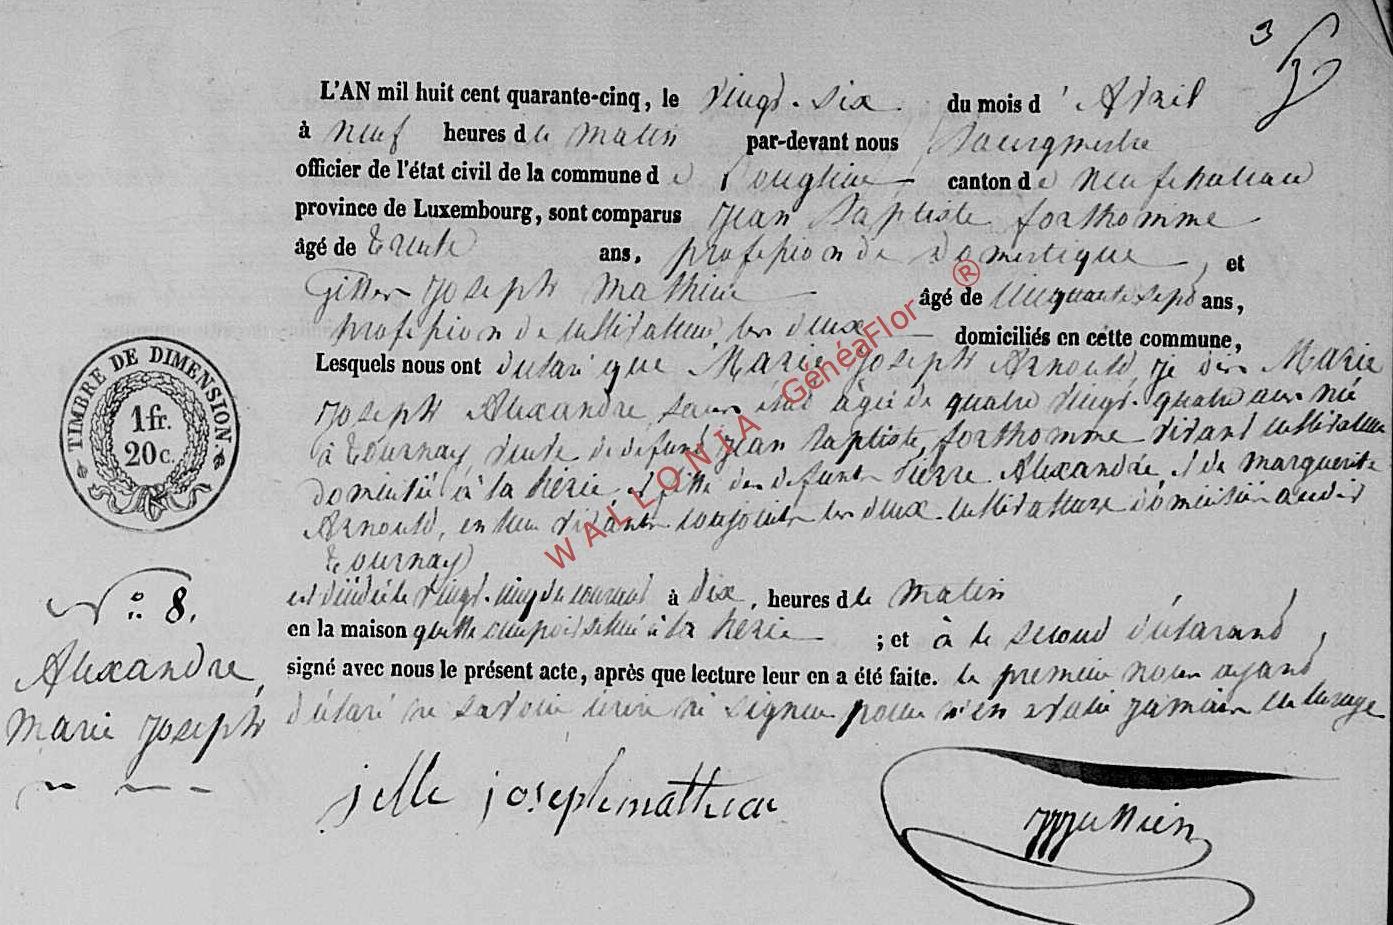 3
L'AN mil huit cent quarante-cinq, le vingt-six du mois d'Avril
à neuf heures de matin par-devant nous Bourgmestre
officier de l'état civil de la commune de Longlier canton de Neufchateau
province de Luxembourg, sont comparus Jean Baptiste forthomme
âgé de trente ans, profession de Domestique, et
Joseph Mathieu âgé de cinquante sept ans,
profession de cultivateur, les deux domiciliés en cette commune,
Lesquels nous ont déclaré que Marie Joseph Arnould je dis Marie
Joseph Alexandre, sans état âgée de quatre vingt-quatre ans née
à Tournay, veuve de defunt Jean Baptiste forthomme vivant cultivateur
domicilié à la hézie, et fille des defunts Pierre Alexandre, et de marguerite
Arnould, en leur vivants conjoints les deux cultivateurs domiciliés audit
Tournay
est décédée le vingt-cinq du courant à dix, heures de matin
en la maison qu'elle occupoit située à la hézie ; et à le second déclarant,
signé avec nous le présent acte, après que lecture leur en a été faite. le premier nous ayant
déclaré ne savoir écrire ni signer pour n'en avoir jamais eu l'usage
TIMBRE DE DIMENSION
1 fr.
20 c.
N° 8.
Alexandre,
Marie Joseph
jille joseph mathieu
WALLONIA GenéaFlor ®